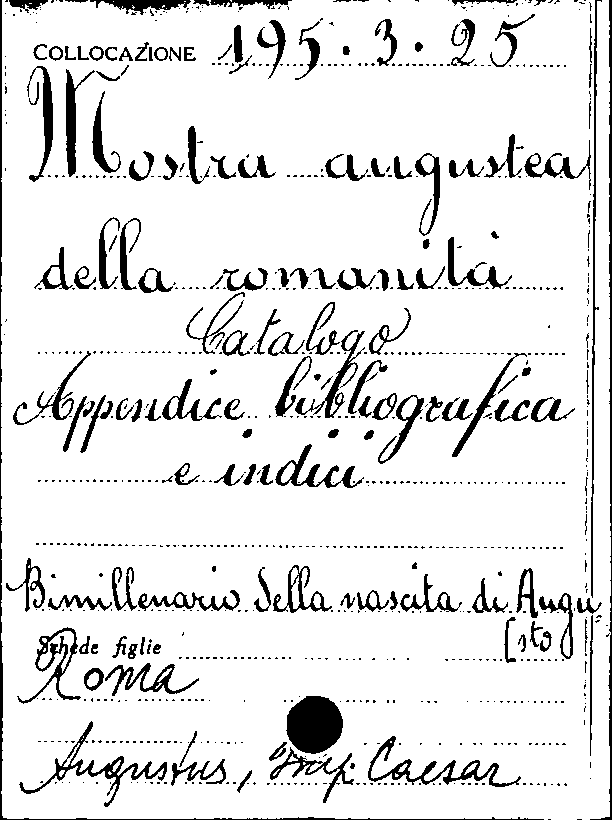 COLLOCAZIONE 195.3.25
Mostra augustea
della romanità
Catalogo
Appendice bibliografica
e indici
Bimillenario della nascita di Augu
[sto
Schede figlie
Roma
Augustus, Imp. Caesar